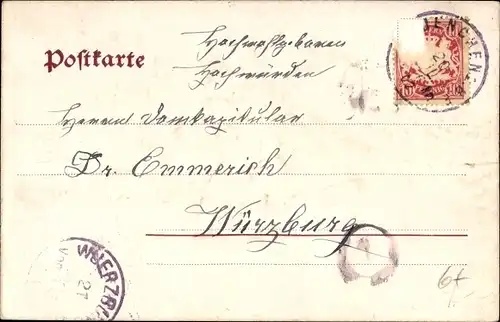 Postkarte
Hochwohlgeboren
Hochwürden
Herrn Domkapitular
Dr. Emmerich
Würzburg
MUENCHEN
10 10
WUERZB
21
6.-